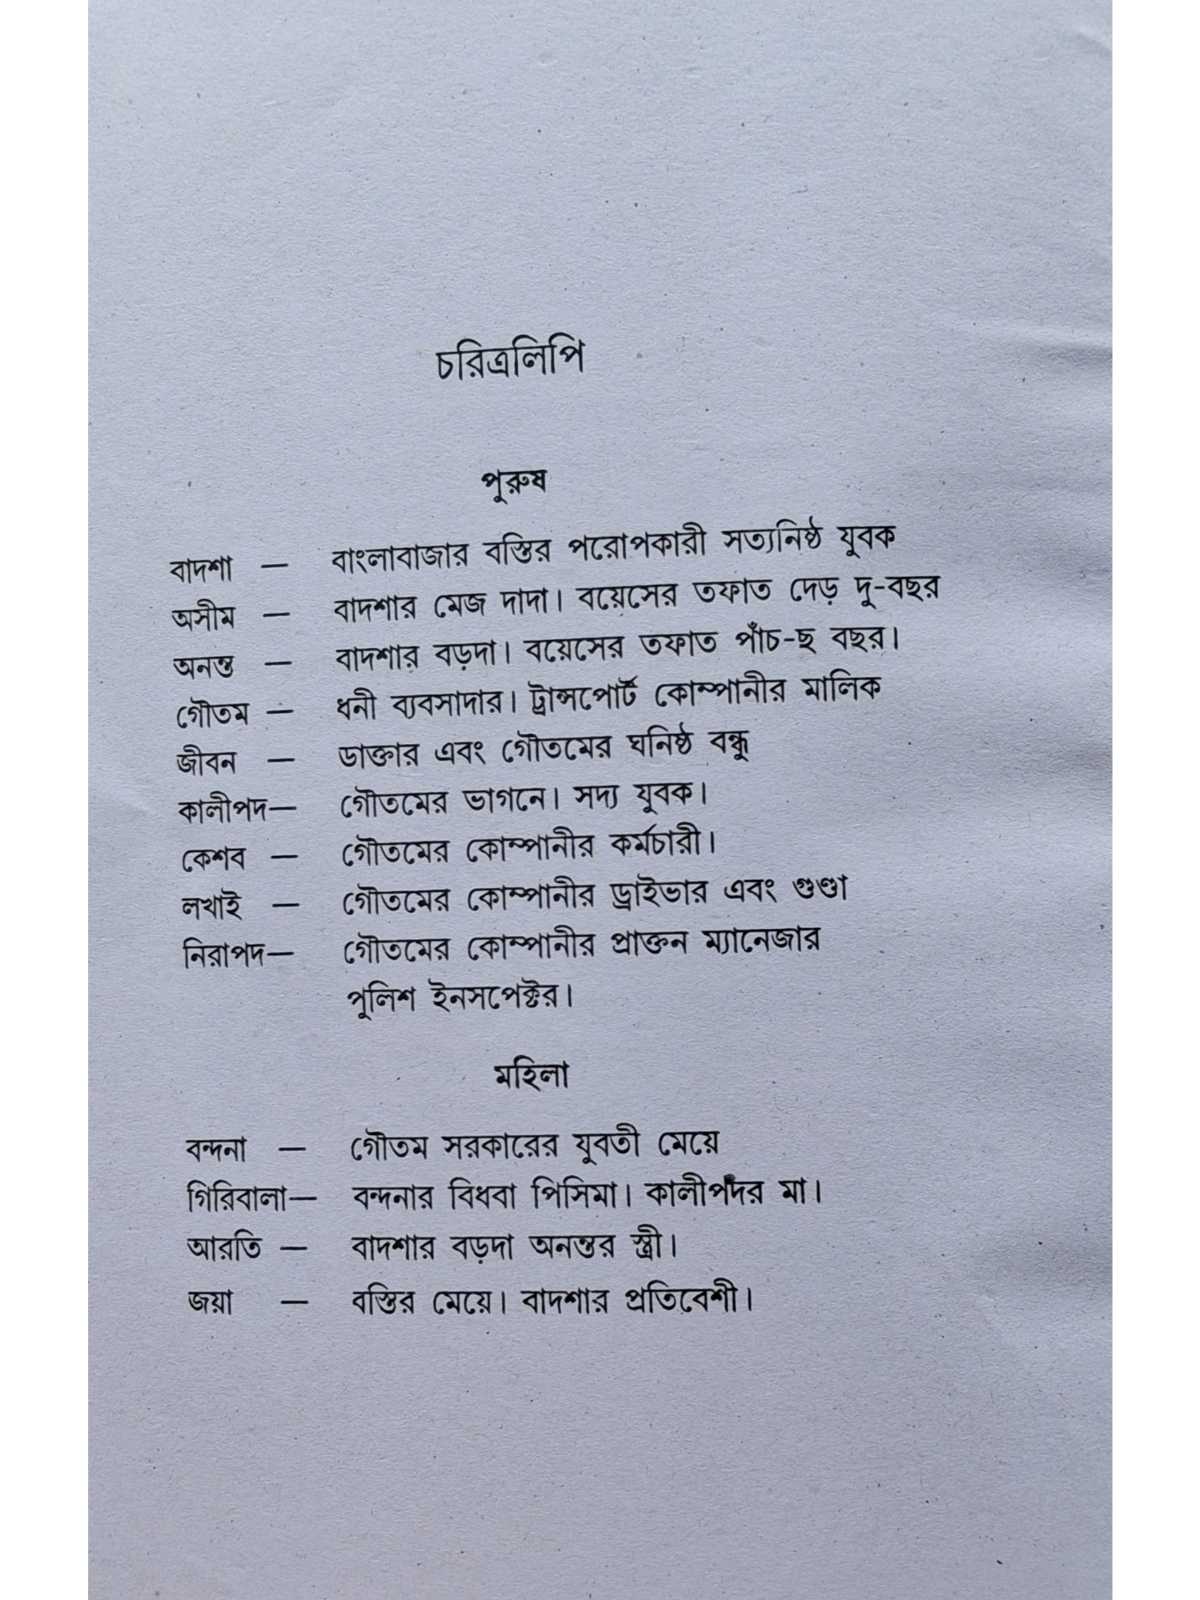 চরিত্রলিপি
পুরুষ
বাদশা — বাংলাবাজার বস্তির পরোপকারী সত্যনিষ্ঠ যুবক
অসীম — বাদশার মেজ দাদা। বয়েসের তফাত দেড় দু-বছর
অনন্ত — বাদশার বড়দা। বয়েসের তফাত পাঁচ-ছ বছর।
গৌতম — ধনী ব্যবসাদার। ট্রান্সপোর্ট কোম্পানীর মালিক
জীবন — ডাক্তার এবং গৌতমের ঘনিষ্ঠ বন্ধু
কালীপদ— গৌতমের ভাগনে। সদ্য যুবক।
কেশব — গৌতমের কোম্পানীর কর্মচারী।
লখাই — গৌতমের কোম্পানীর ড্রাইভার এবং গুণ্ডা
নিরাপদ— গৌতমের কোম্পানীর প্রাক্তন ম্যানেজার
পুলিশ ইনসপেক্টর।
মহিলা
বন্দনা — গৌতম সরকারের যুবতী মেয়ে
গিরিবালা— বন্দনার বিধবা পিসিমা। কালীপদর মা।
আরতি — বাদশার বড়দা অনন্তর স্ত্রী।
জয়া — বস্তির মেয়ে। বাদশার প্রতিবেশী।